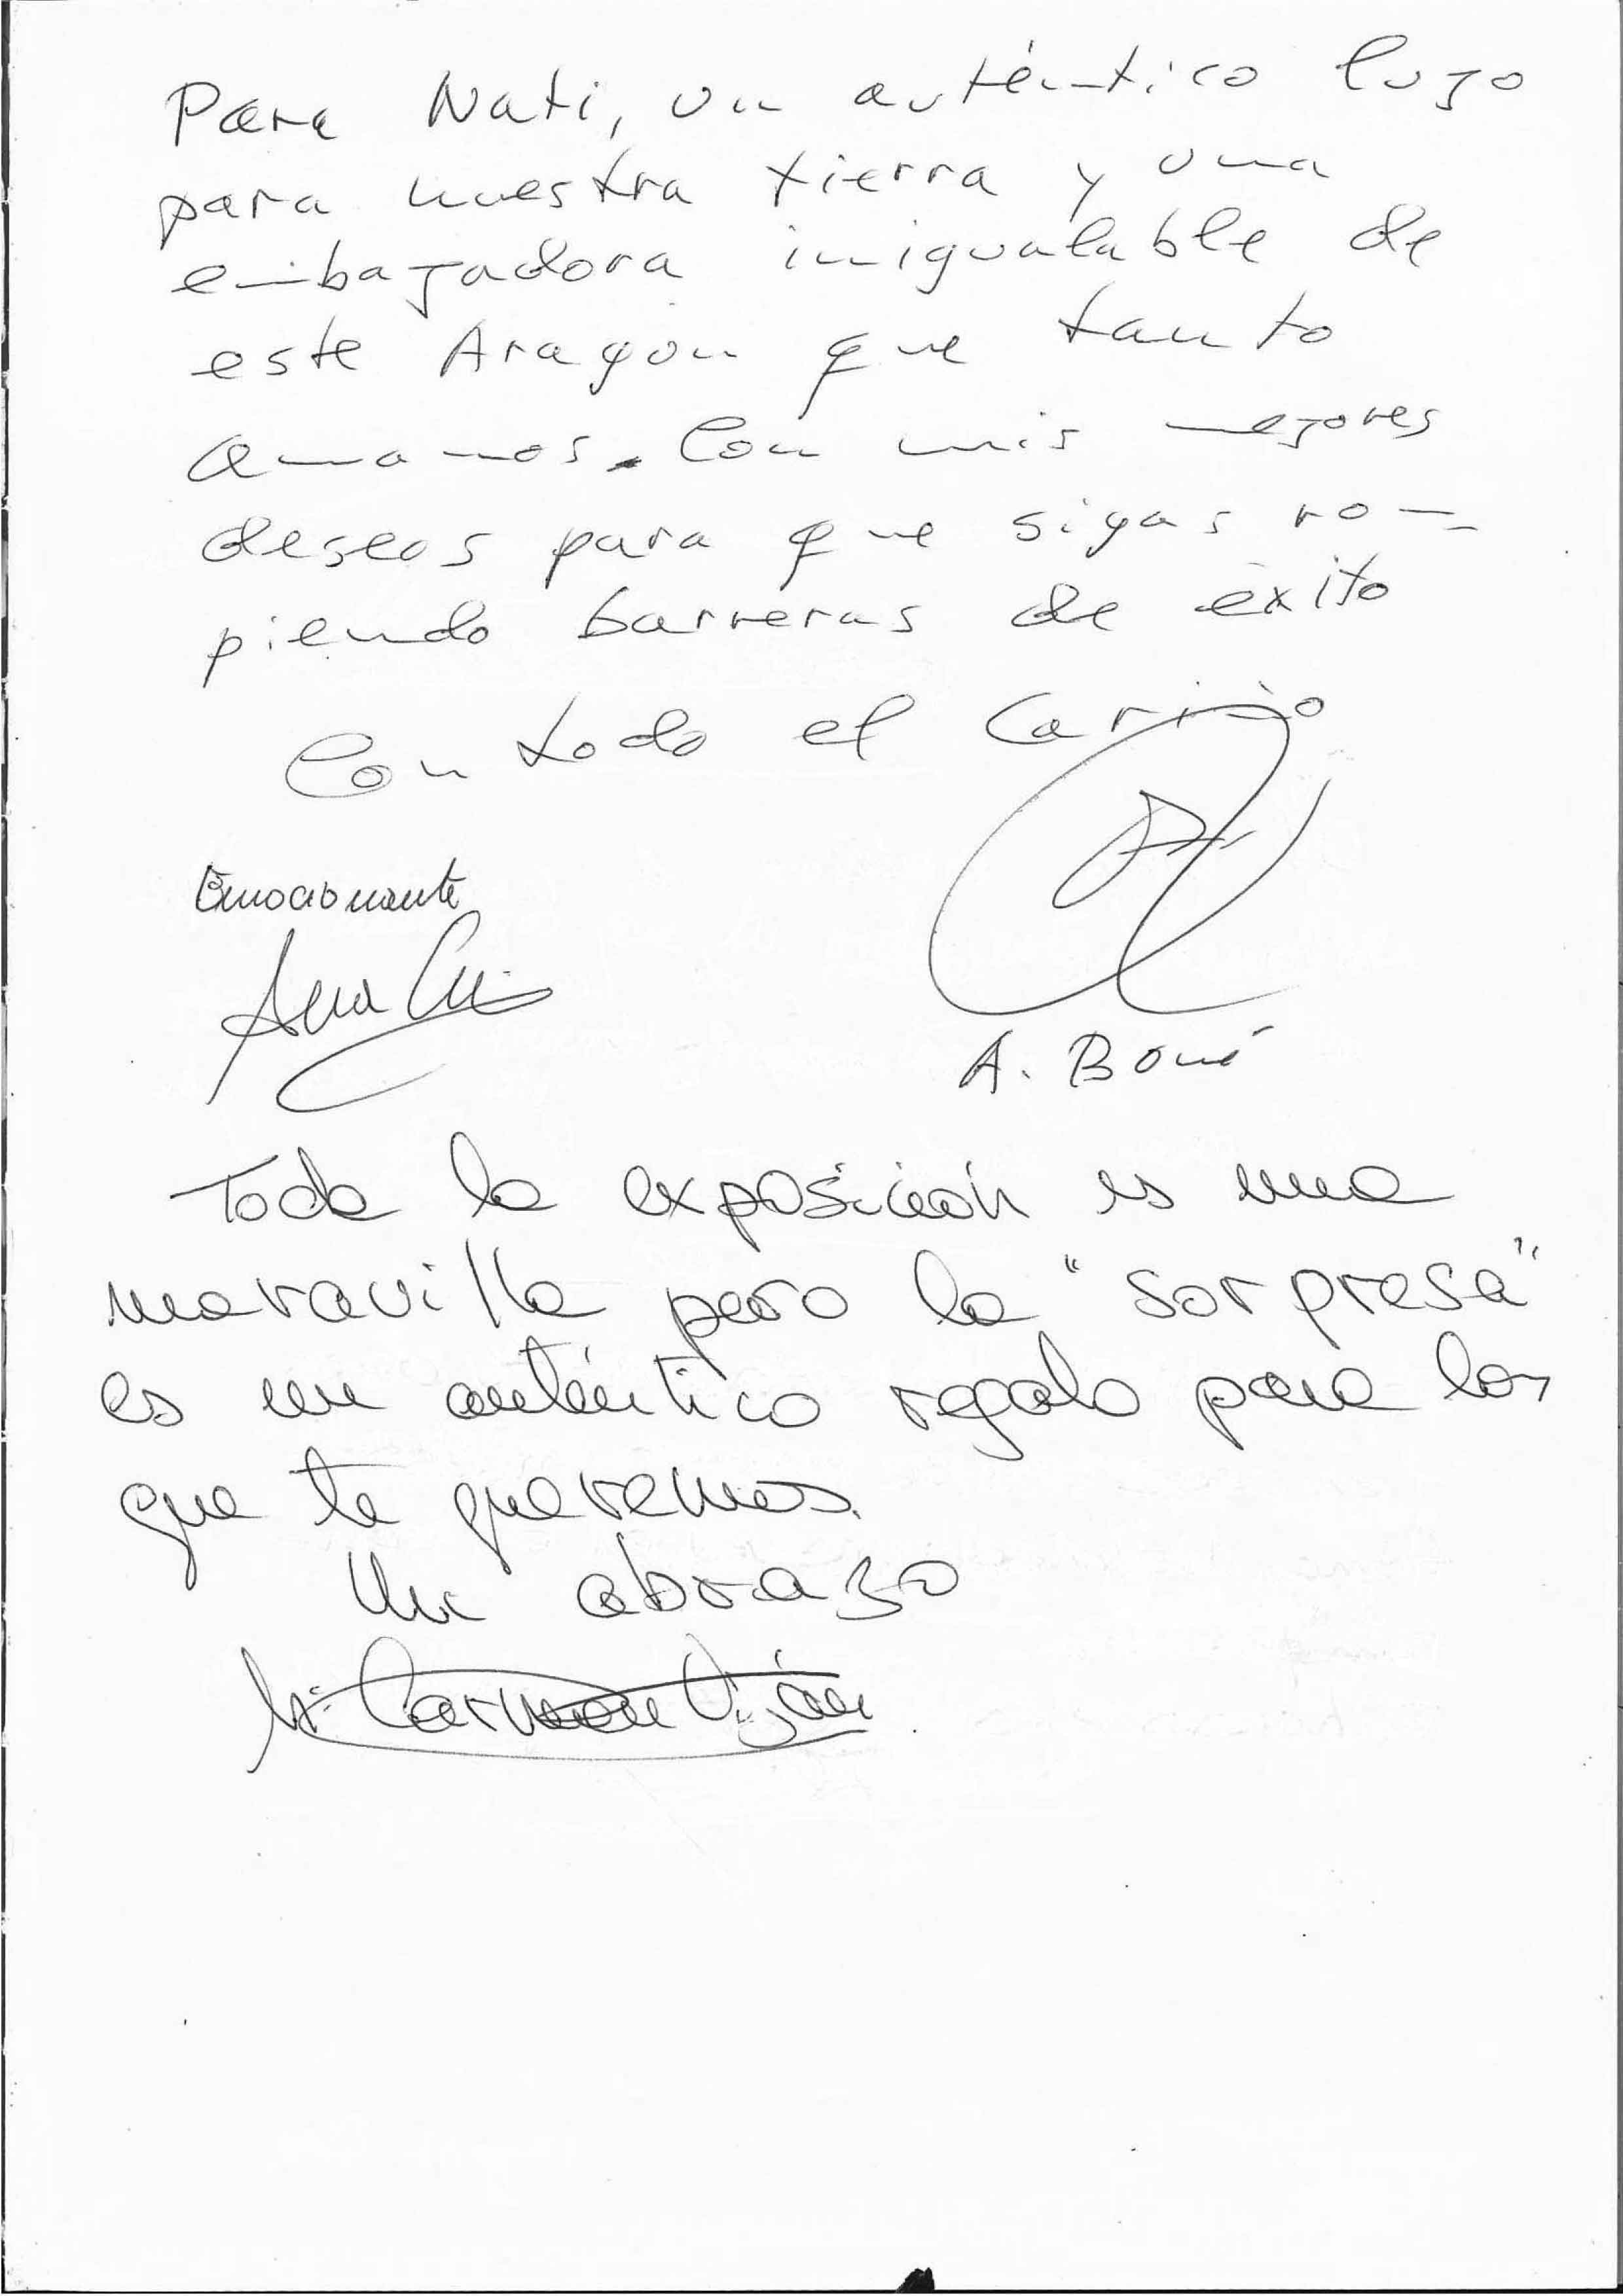 Para Nati, un auténtico lujo
para nuestra tierra y una
embajadora inigualable de
este Aragon que tanto
amamos. Con mis mejores
deseos para que sigas rom-
piendo barreras de éxito
Con todo el cariño
Emocionante
Ana
A. Boné
Toda la exposición es una
maravilla pero la "sorpresa"
es un auténtico regalo para los
que te queremos.
Un abrazo
Mª Carmen Viján